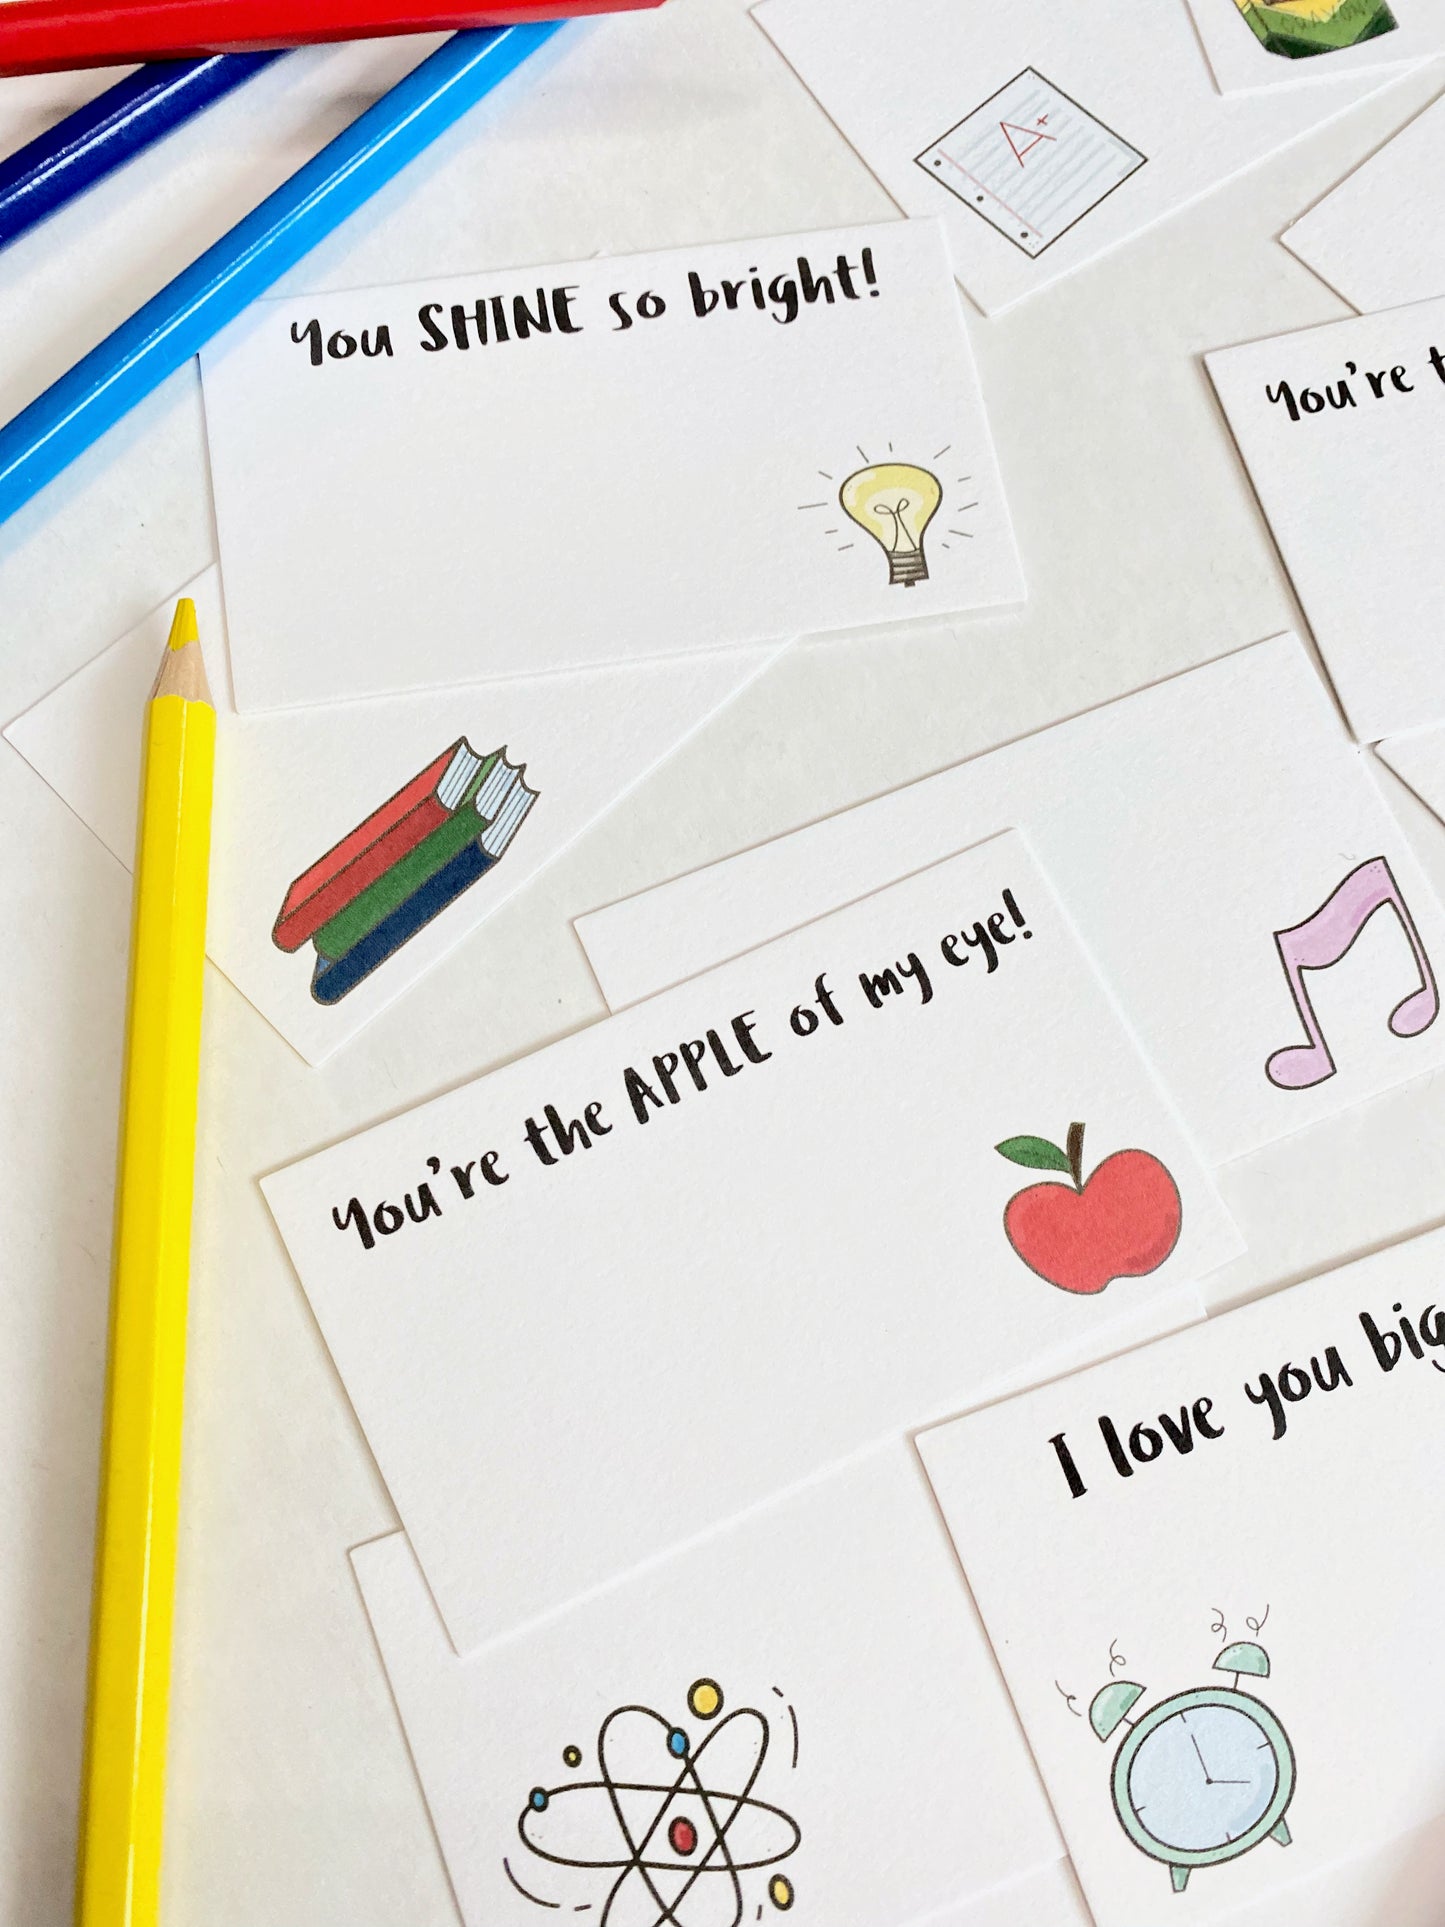 A+
You SHINE so bright!
You're t
You're the APPLE of my eye!
I love you big